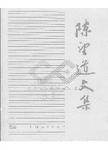 陈望道文集